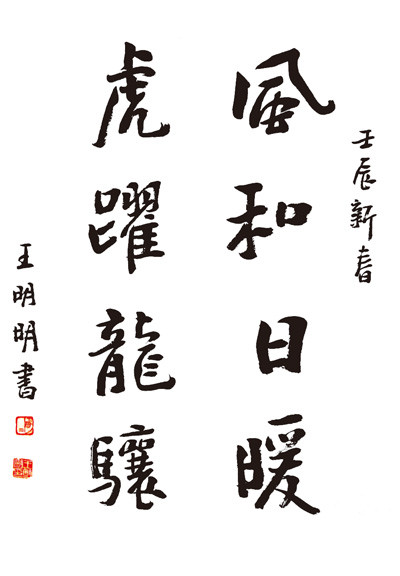 壬辰新春
風和日暖
虎躍龍驤
王明明書